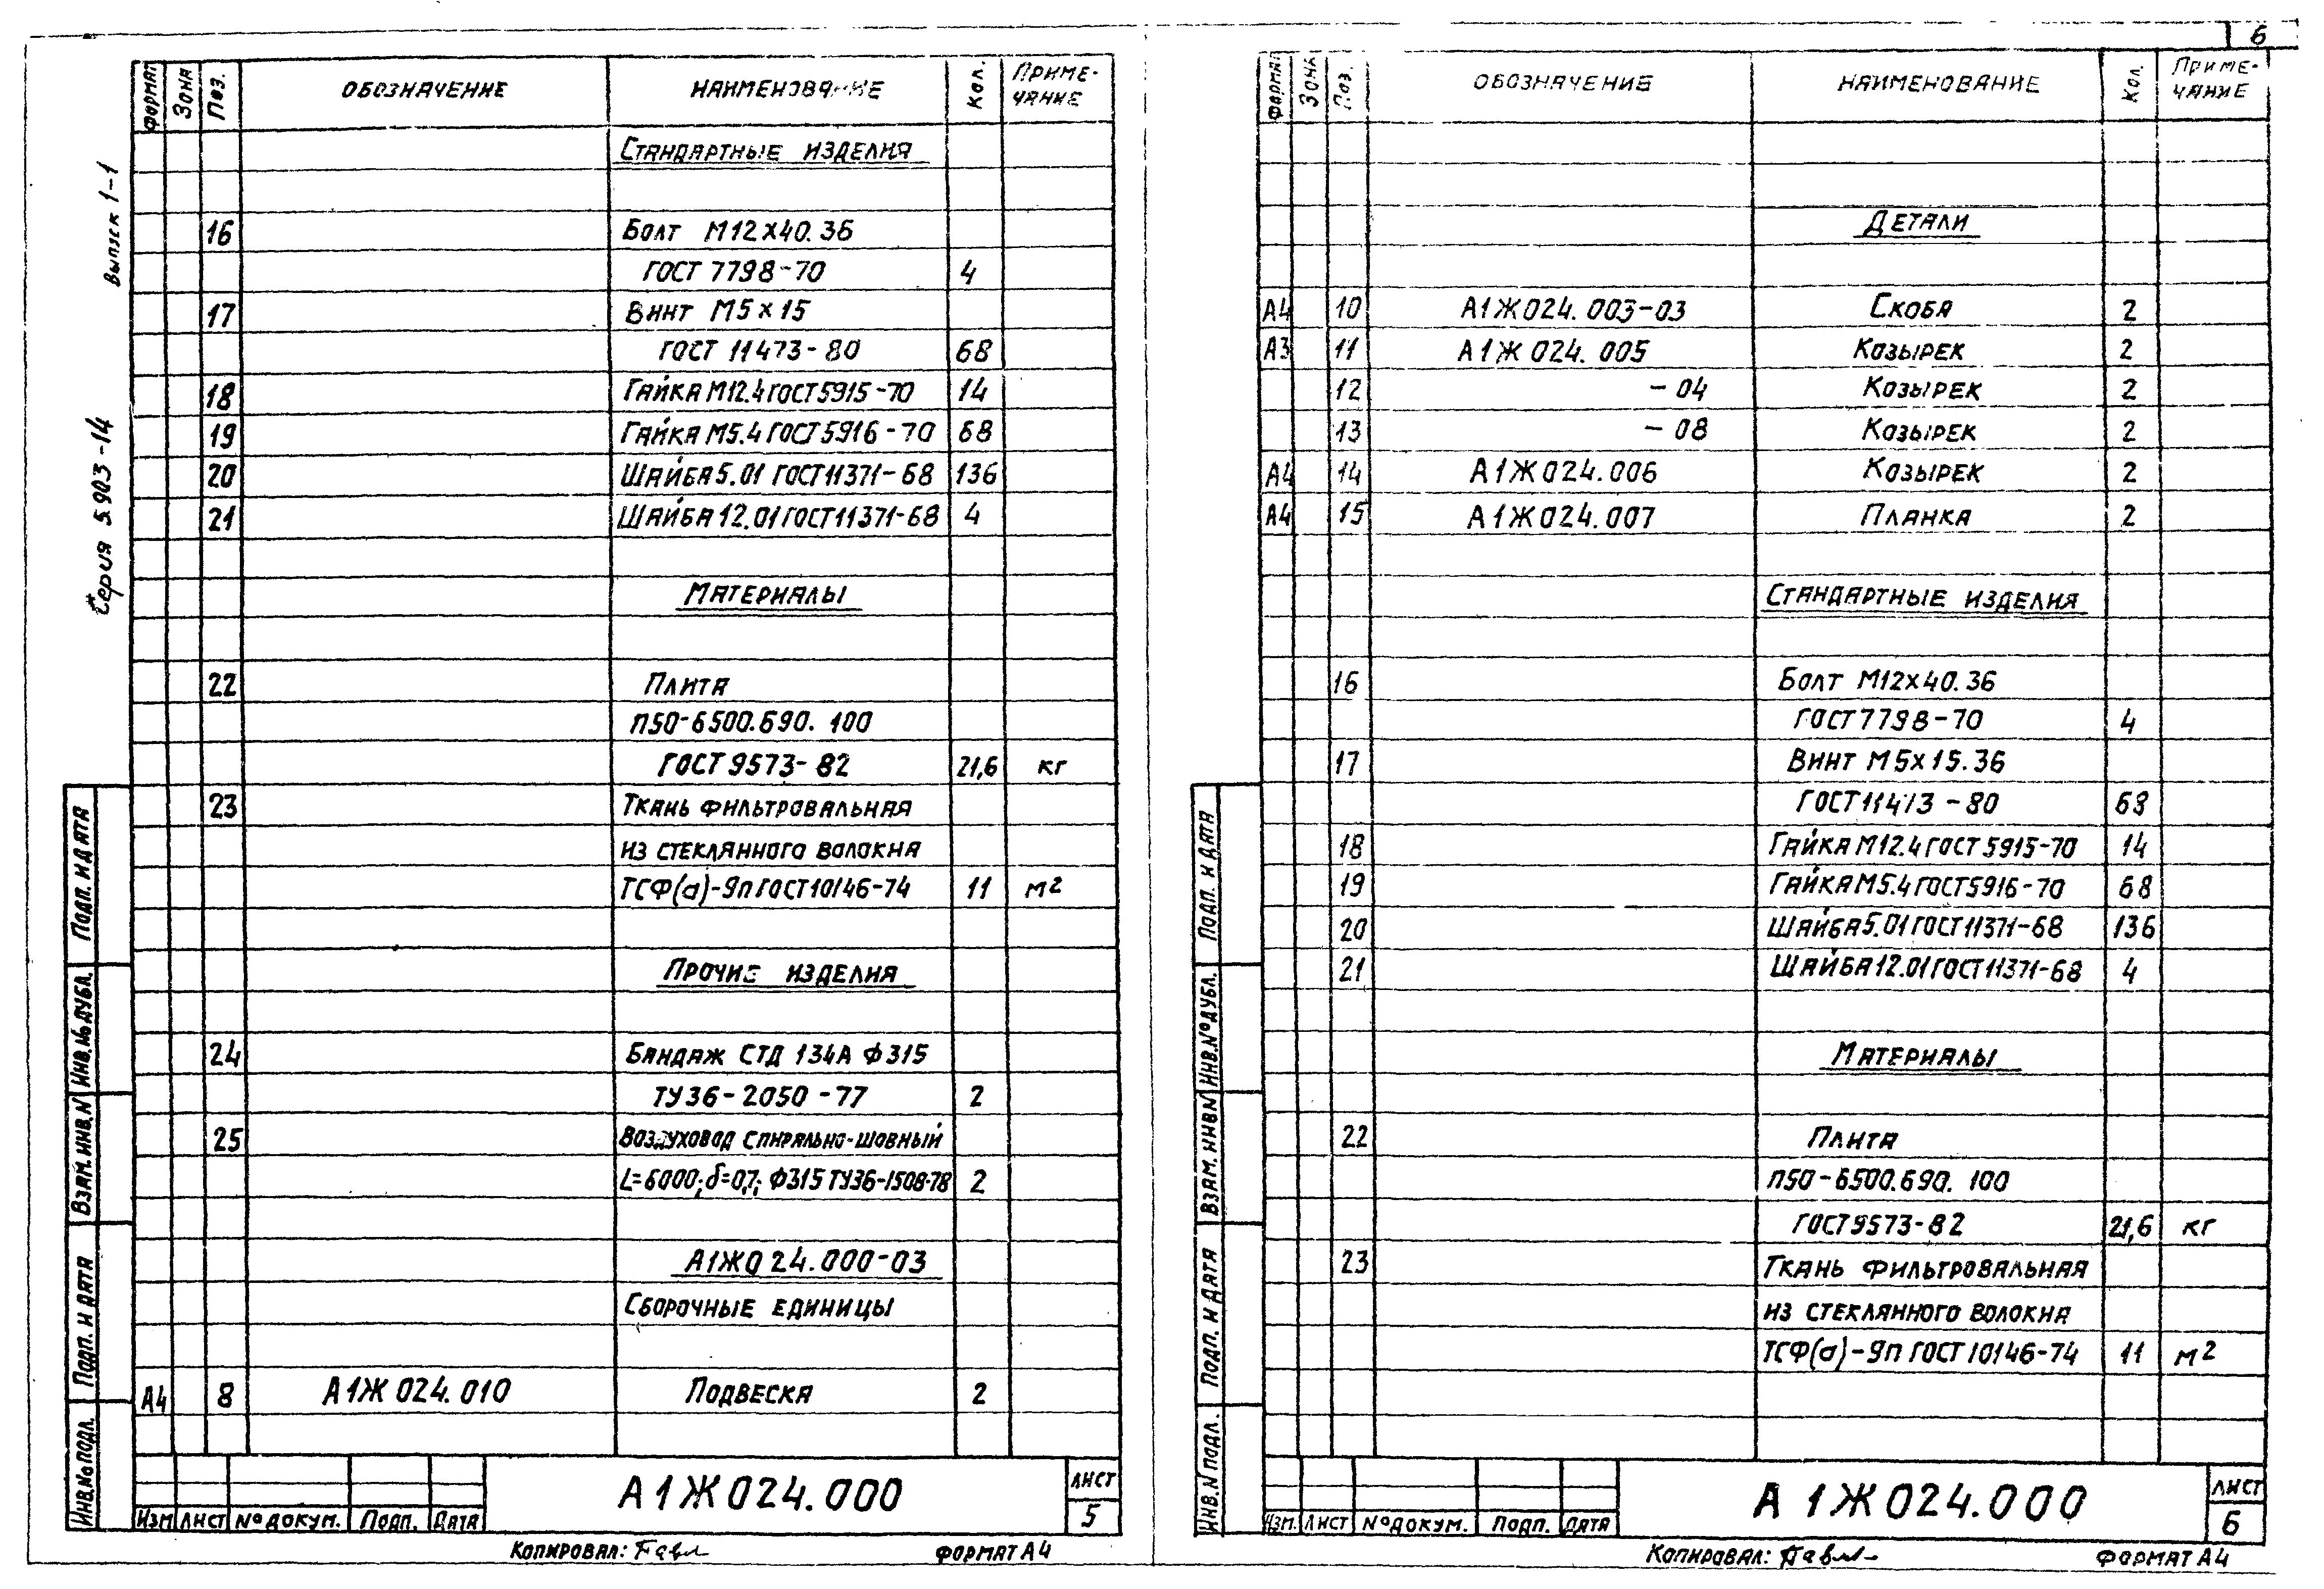 6
Серия 5.903-14 Выпуск 1-1
Формат Зона Поз. Обозначение Наименование Кол. Приме-
чание
Стандартные изделия
16 Болт М12х40.36
ГОСТ 7798-70 4
17 Винт М5х15
ГОСТ 11473-80 68
18 Гайка М12.4 ГОСТ 5915-70 14
19 Гайка М5.4 ГОСТ 5916-70 68
20 Шайба 5.01 ГОСТ 11371-68 136
21 Шайба 12.01 ГОСТ 11371-68 4
Материалы
22 Плита
П50-6500.690.100
ГОСТ 9573-82 21,6 кг
23 Ткань фильтровальная
из стеклянного волокна
ТСФ(а)-9п ГОСТ 10146-74 11 м2
Прочие изделия
24 Бандаж СТД 134А Ф315
ТУ36-2050-77 2
25 Воздуховод спирально-шовный
L=6000; δ=0,7; Ф315 ТУ36-1508-78 2
А1Ж024.000-03
Сборочные единицы
А4 8 А1Ж024.010 Подвеска 2
Инв.№подл. Подп. и дата Взам.инв.N Инв.№дубл. Подп. и дата
Изм Лист №докум. Подп. Дата
А1Ж024.000
Лист
5
Копировал:
Формат А4
Формат Зона Поз. Обозначение Наименование Кол. Приме-
чание
Детали
А4 10 А1Ж024.003-03 Скоба 2
А3 11 А1Ж024.005 Козырек 2
12 -04 Козырек 2
13 -08 Козырек 2
А4 14 А1Ж024.006 Козырек 2
А4 15 А1Ж024.007 Планка 2
Стандартные изделия
16 Болт М12х40.36
ГОСТ 7798-70 4
17 Винт М5х15.36
ГОСТ 11473-80 68
18 Гайка М12.4 ГОСТ 5915-70 14
19 Гайка М5.4 ГОСТ 5916-70 68
20 Шайба 5.01 ГОСТ 11371-68 136
21 Шайба 12.01 ГОСТ 11371-68 4
Материалы
22 Плита
П50-6500.690.100
ГОСТ 9573-82 21,6 кг
23 Ткань фильтровальная
из стеклянного волокна
ТСФ(а)-9п ГОСТ 10146-74 11 м2
Инв.N подл. Подп. и дата Взам.инвN Инв.N°дубл. Подп. и дата
Изм. Лист №докум. Подп. Дата
А1Ж024.000
Лист
6
Копировал:
Формат А4